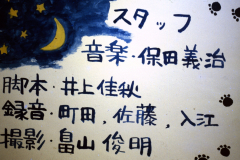 スタッフ
音楽・保田義治
脚本・井上佳秋
録音・町田，佐藤，入江
撮影・畠山俊明